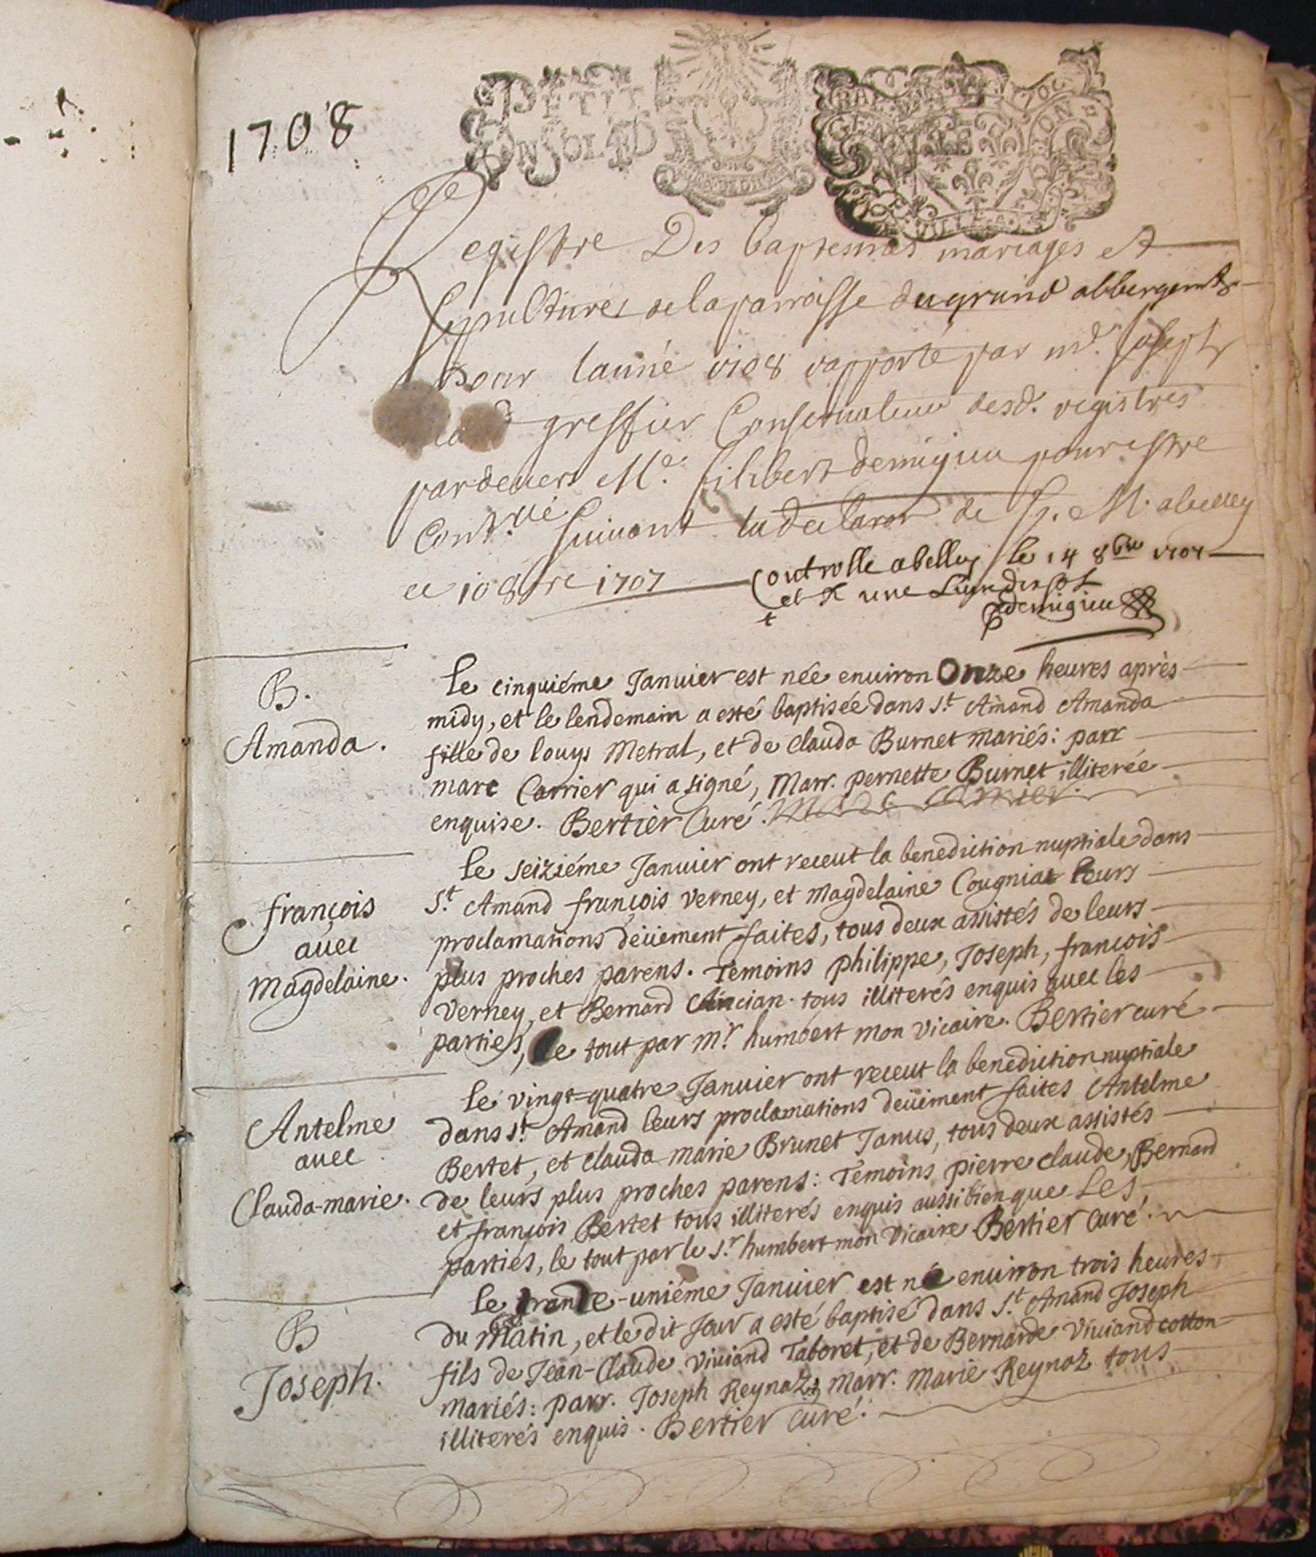 1708
PETIT
GENRALE
Registre Des baptesmes mariages et
sepultures de la parroisse du grand abbergement
pour lanné 1708 rapporté par me. Joseph
greffier Conservateur desd. registres
pardevers Me. filibert demigieu pour estre
Contrllé suivant la declaraon de Sr. M. abelley
ce 10 8bre 1707
Controlle a belley le 14 8bre 1707
et R une Livre dix sol
demigieu
B.
Amanda.
Le cinquiéme Januier est née enuiron Onze heures après
midy, et le lendemain a esté baptisée dans St Amand Amanda
fille de louys Metral, et de Clauda Burnet mariés: parr
marc Carrier qui a signé, Marr. pernette Burnet illiterée
enquise. Bertier Curé. Marc carrier.
françois
auec
Magdelaine.
Le seiziéme Januier ont receut la benediction nuptiale dans
St Amand françois Verney, et Magdelaine Cougniat leurs
proclamations deüement faites, tous deux assistés de leurs
plus proches parens. Temoins philippe, Joseph, françois
Verney, et Bernard Ancian. tous illiterés enquis auec les
parties, Le tout par mr humbert mon vicaire. Bertier curé
Antelme
auec
Clauda-marie.
Le vingt=quatre Januier ont receut la benediction nuptiale
dans St Amand leurs proclamations deüement faites Antelme
Bertet, et Clauda marie Brunet Janus, tous deux assistés
de leurs plus proches parens: Temoins pierre claude, Bernard
et françois Bertet tous illiterés enquis aussi bien que Les
parties, le tout par le Sr humbert mon vicaire Bertier Curé.
B
Joseph.
Le trante-uniéme Januier est né enuiron trois heures
du Matin, et le dit Jour a esté baptisé dans St Amand Joseph
fils de Jean-Claude Viviand Taboret, et de Bernarde Viviand cotton
mariés: parr. Joseph Reynaz, Marr. Marie Reynaz tous
illiterés enquis. Bertier Curé.